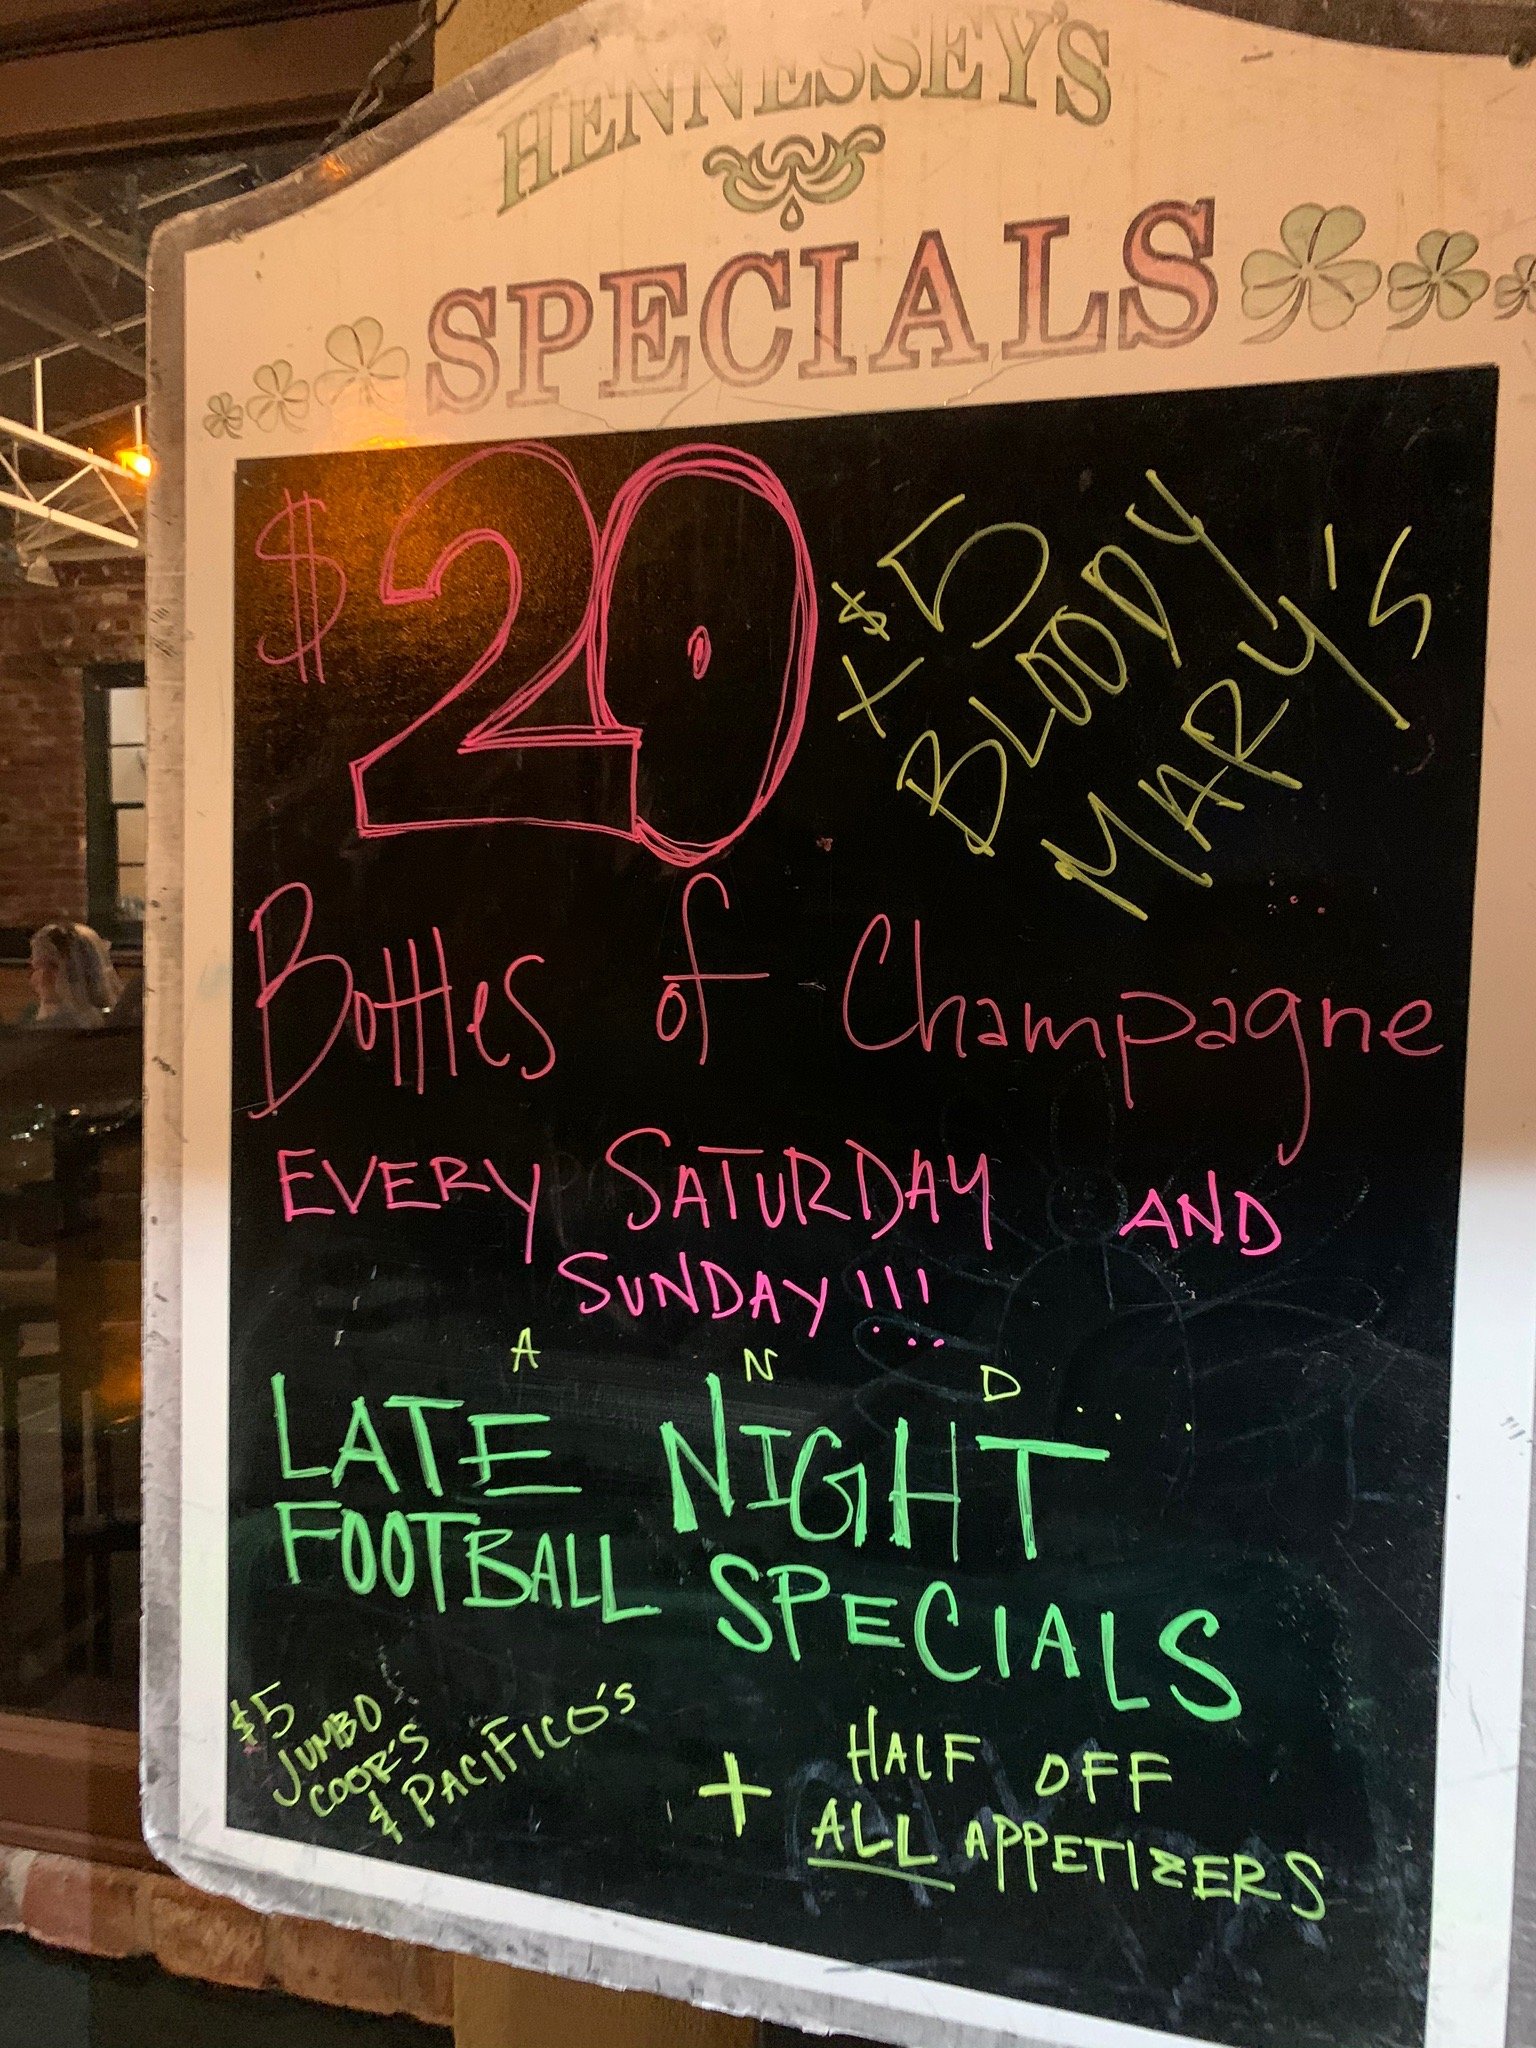 HENNESSEY'S
SPECIALS
$20
+ $5
BLOODY
MARY'S
Bottles of Champagne
EVERY SATURDAY AND
SUNDAY!!!
A N D...
LATE NIGHT
FOOTBALL SPECIALS
$5
JUMBO
COOR'S
& PACIFICO'S
+ HALF OFF
ALL APPETIZERS